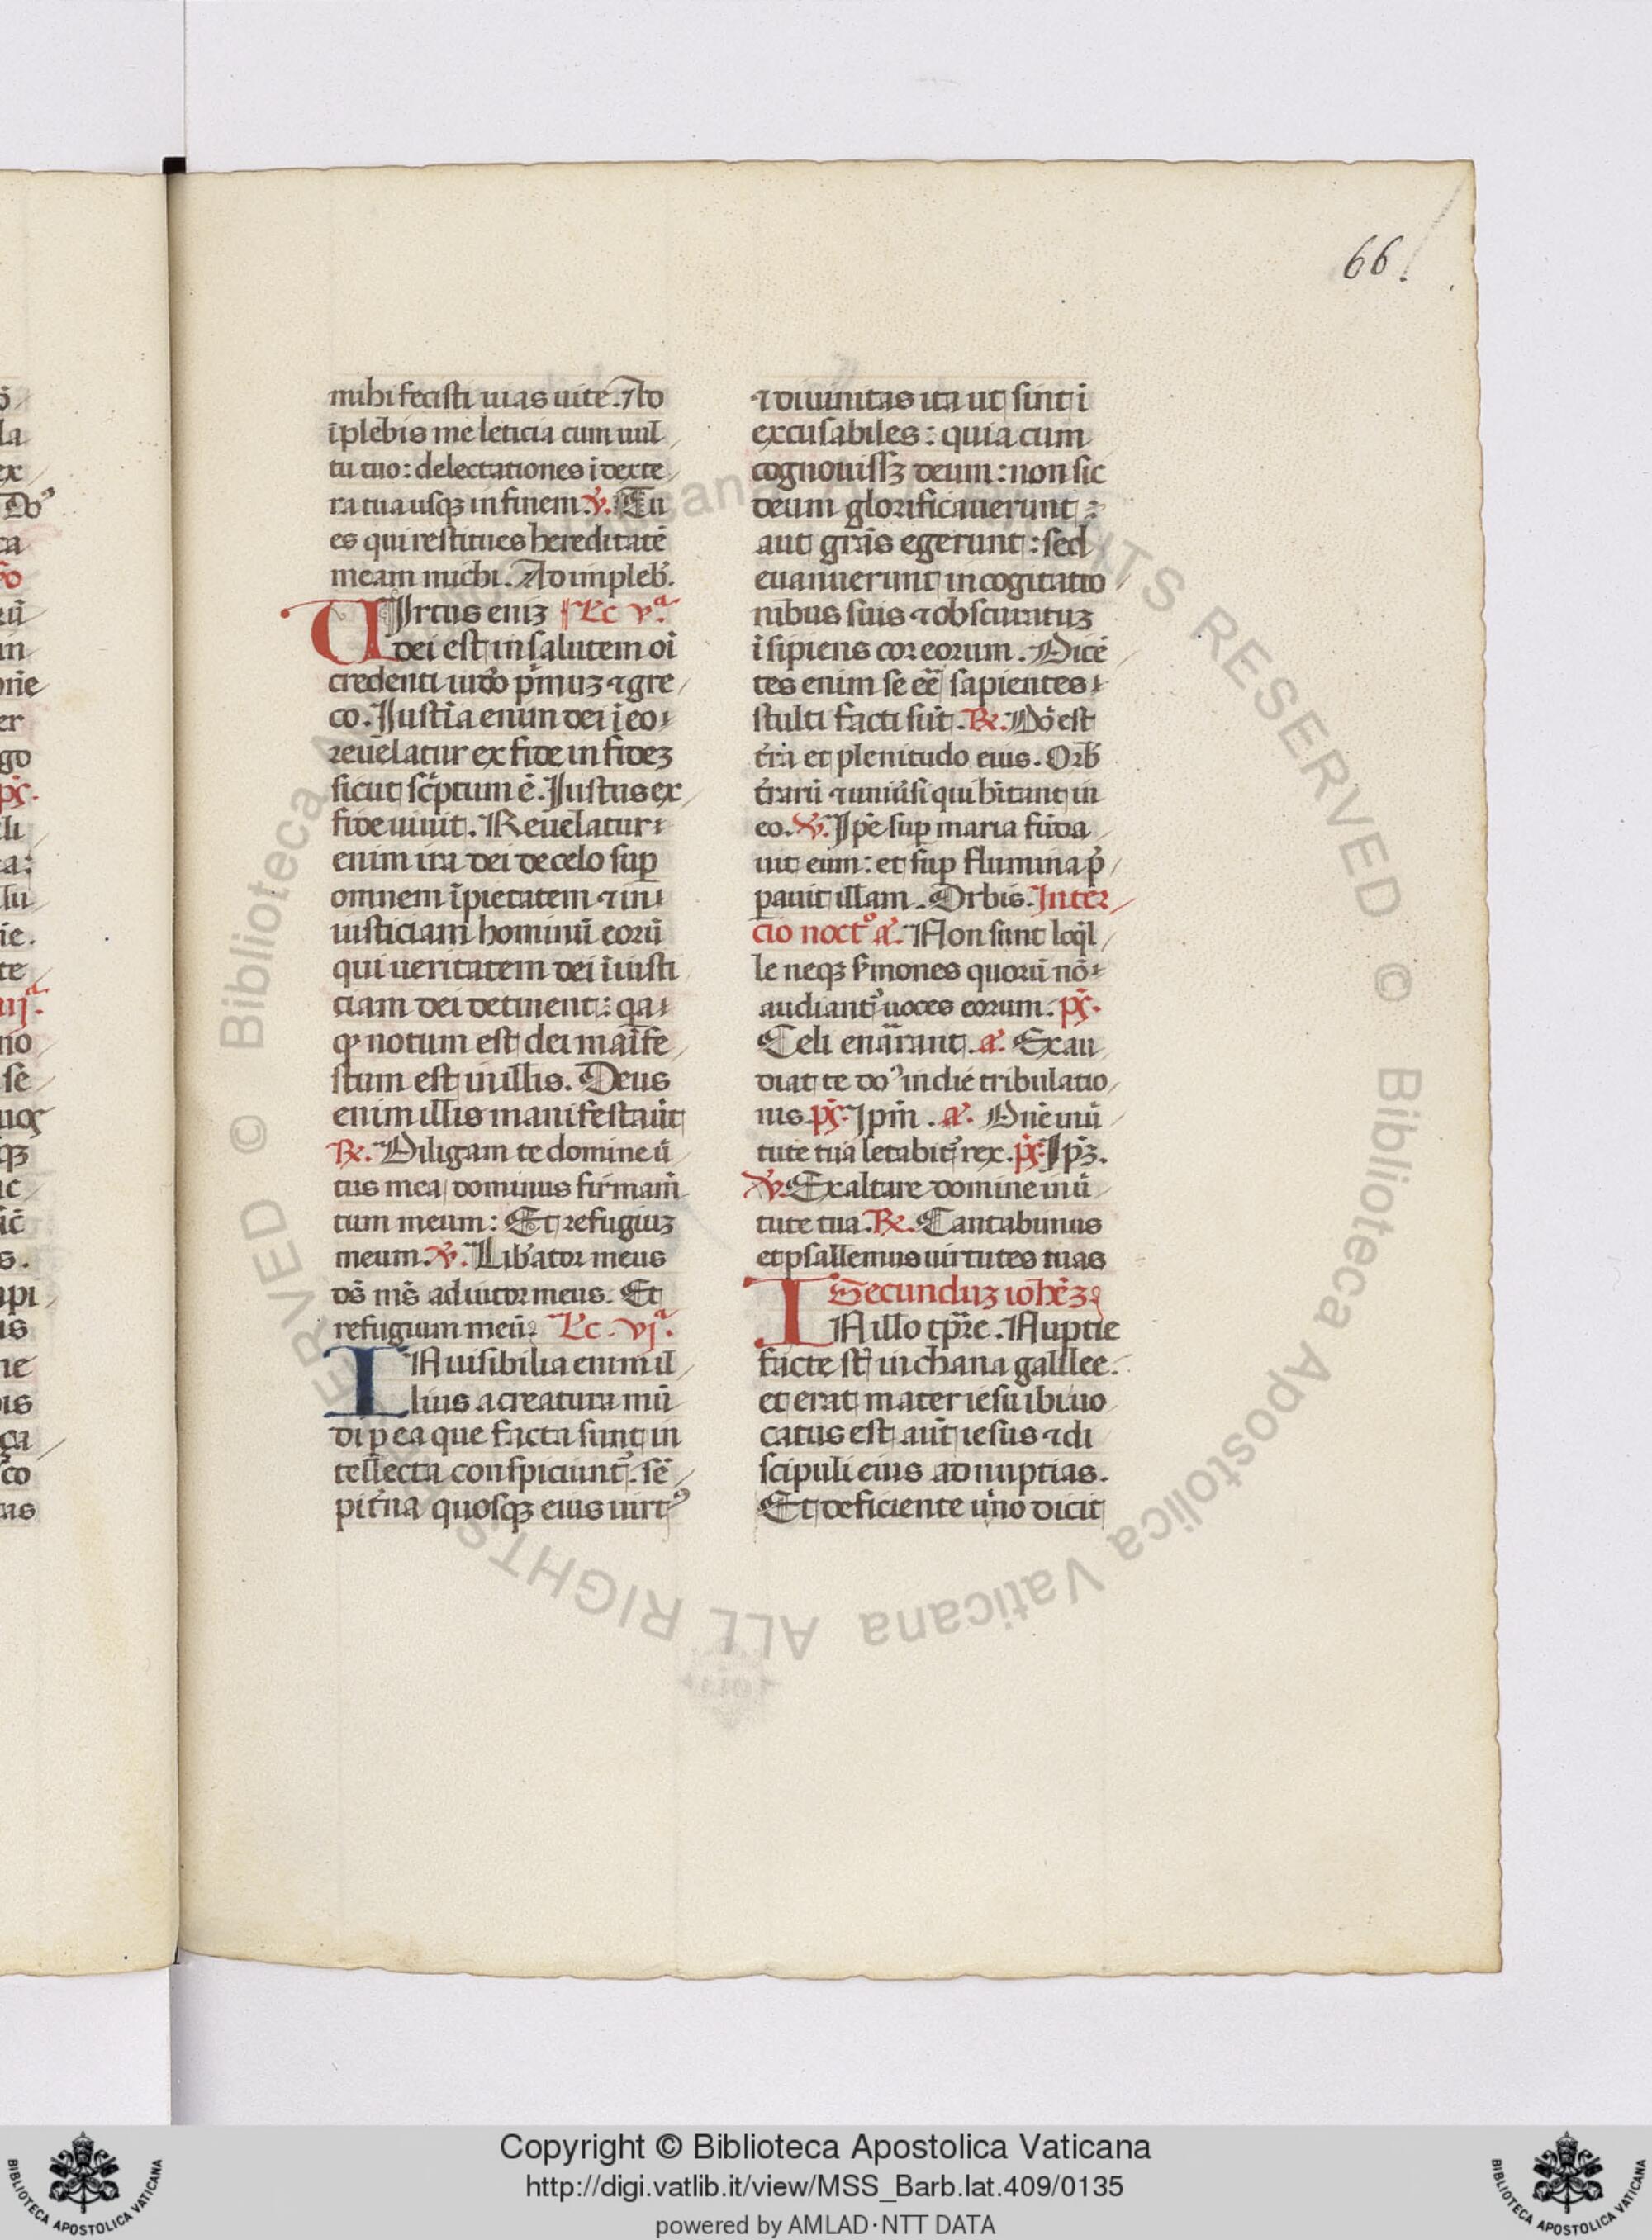 66.
mihi fecisti uias uite. Ad
īplebis me leticia cum uul
tu tuo: delectationes ī dexte
ra tua usqꝫ in finem. ℣. Tu
es qui restitues hereditatē
meam michi. Ad impleb̄.
UIrtus eniꝫ Lc̄ vᵃ.
dei est in salutem oī
credenti iudō pͥmuꝫ ⁊ gre
co. Iustīa enim dei ī eo
reuelatur ex fide in fideꝫ
sicut scͥptum ē. Iustus ex
fide uiuit. Reuelatur
enim ira dei de celo suꝑ
omnem īpietatem ⁊ in
iusticiam hominū eorū
qui ueritatem dei ī iusti
ciam dei detinent: qa
ꝙ notum est dei maīfe
stum est in illis. Deus
enim illis manifestauit
℞. Diligam te domine ū
tus mea dominus firmam̄
tum meum: Et refugiuꝫ
meum. ℣. Lib̄ator meus
ds̄ ms̄ adiutor meus. Et
refugium meū. Lc̄. vjᵃ.
INuisibilia enim il
lius a creatura mū
di ꝑ ea que facta sunt in
tellecta conspiciunt᷑. sē
pit̄na quosqꝫ eius uirtꝰ
⁊ diuinitas ita ut sint ī
excusabiles: quia cum
cognouissꝫ deum: non sic
deum glorificauerunt:
aut grās egerunt: sed
euanuerunt in cogitatio
nibus suis ⁊ obscuratuꝫ
īsipiens cor eorum. Dicē
tes enim se eē sapientes
stulti facti sūt. ℞. Dn̄i est
tr̄a et plenitudo eius. Orb̄
tr̄arū ⁊ uniūsi qui hītant in
eo. ℣. Ip̄e suꝑ maria fūda
uit eum: et suꝑ flumina p̄
parauit illam. Orbis. In ter
cio noctº a᷑. Non sunt loq̄l
le neqꝫ s̄mones quorū nō
audiant᷑ uoces eorum. ps̄.
Celi enārant. a᷑. Exau
diat te doꝰ in die tribulatio
nis ps̄. Ipm̄. a᷑. Dn̄e in ū
tute tua letabit᷑ rex. ps̄. Ip̄ꝫ.
℣. Exaltare domine in ū
tute tua. ℞. Cantabimus
et psallemus uirtutes tuas
Secunduꝫ ioh̄eꝫ
IN illo tp̄re. Nuptie
facte st̄ in chana galilee.
et erat mater iesu ibi uo
catus est aūt iesus ⁊ di
scipuli eius ad nuptias.
Et deficiente uino dicit
Copyright © Biblioteca Apostolica Vaticana
http://digi.vatlib.it/view/MSS_Barb.lat.409/0135
powered by AMLAD·NTT DATA